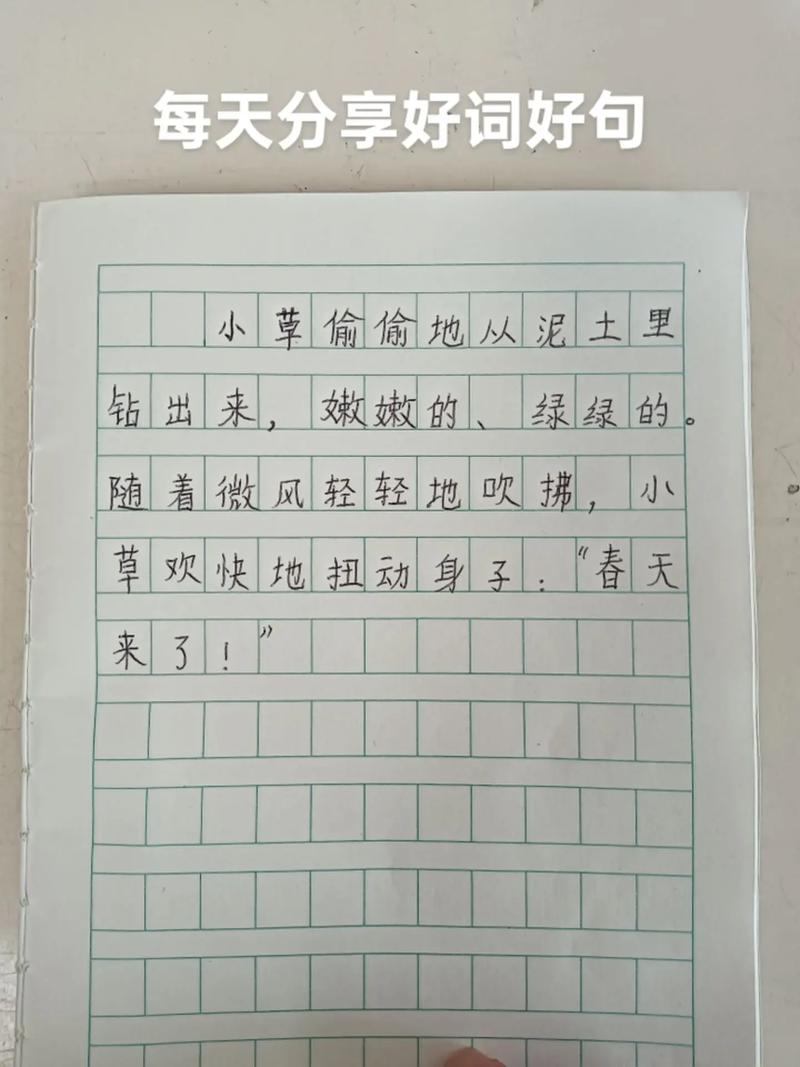 每天分享好词好句
小草偷偷地从泥土里
钻出来，嫩嫩的、绿绿的。
随着微风轻轻地吹拂，小
草欢快地扭动身子：“春天
来了！”